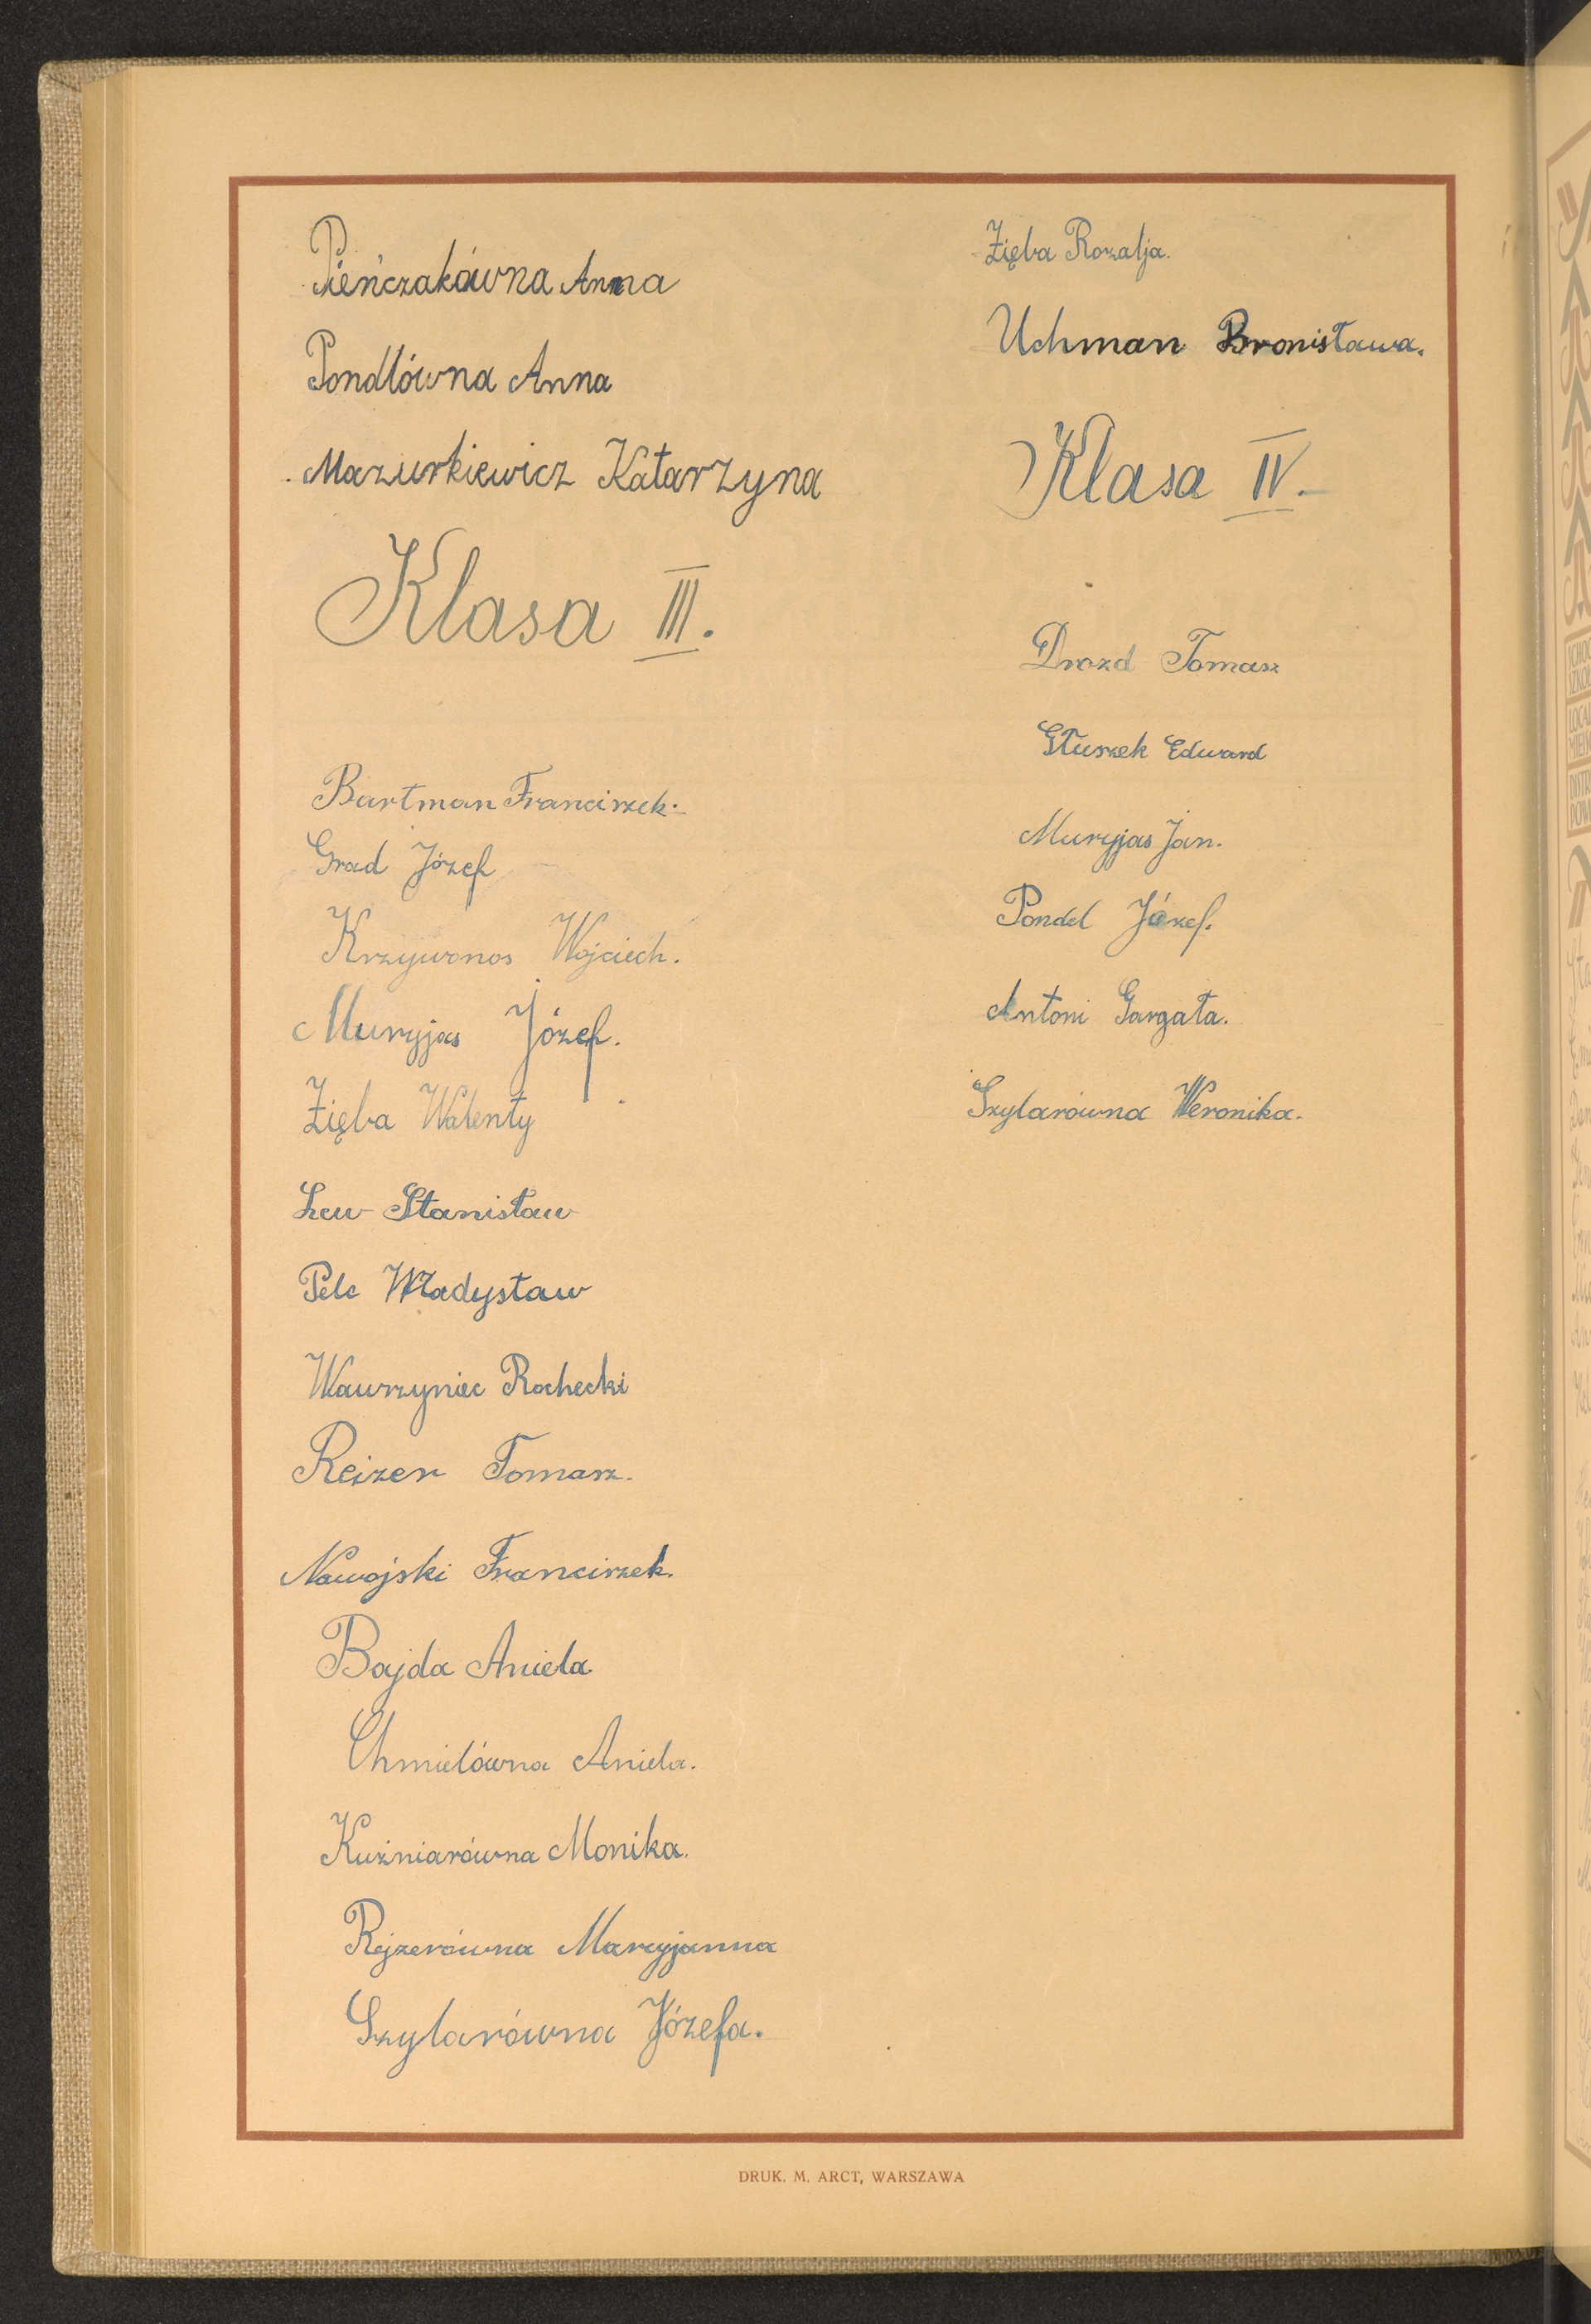 Pieńczakówna Anna
Pondlówna Anna
Mazurkiewicz Katarzyna
Klasa III.
Bartman Franciszek.
Grad Józef
Krzywonos Wojciech.
Muryjas Józef.
Zięba Walenty
Lew Stanisław
Pelc Władysław
Wawrzyniec Rochecki
Reizer Tomasz.
Nawojski Franciszek.
Bajda Aniela
Chmielówna Aniela.
Kuźniarówna Monika.
Rejzerówna Maryjanna
Szylarówna Józefa.
Zięba Rozalja.
Uchman Bronisława.
Klasa IV.
Drozd Tomasz
Głuszek Edward
Muryjas Jan.
Pondel Józef.
Antoni Gargała.
Szylarówna Weronika.
DRUK. M. ARCT, WARSZAWA